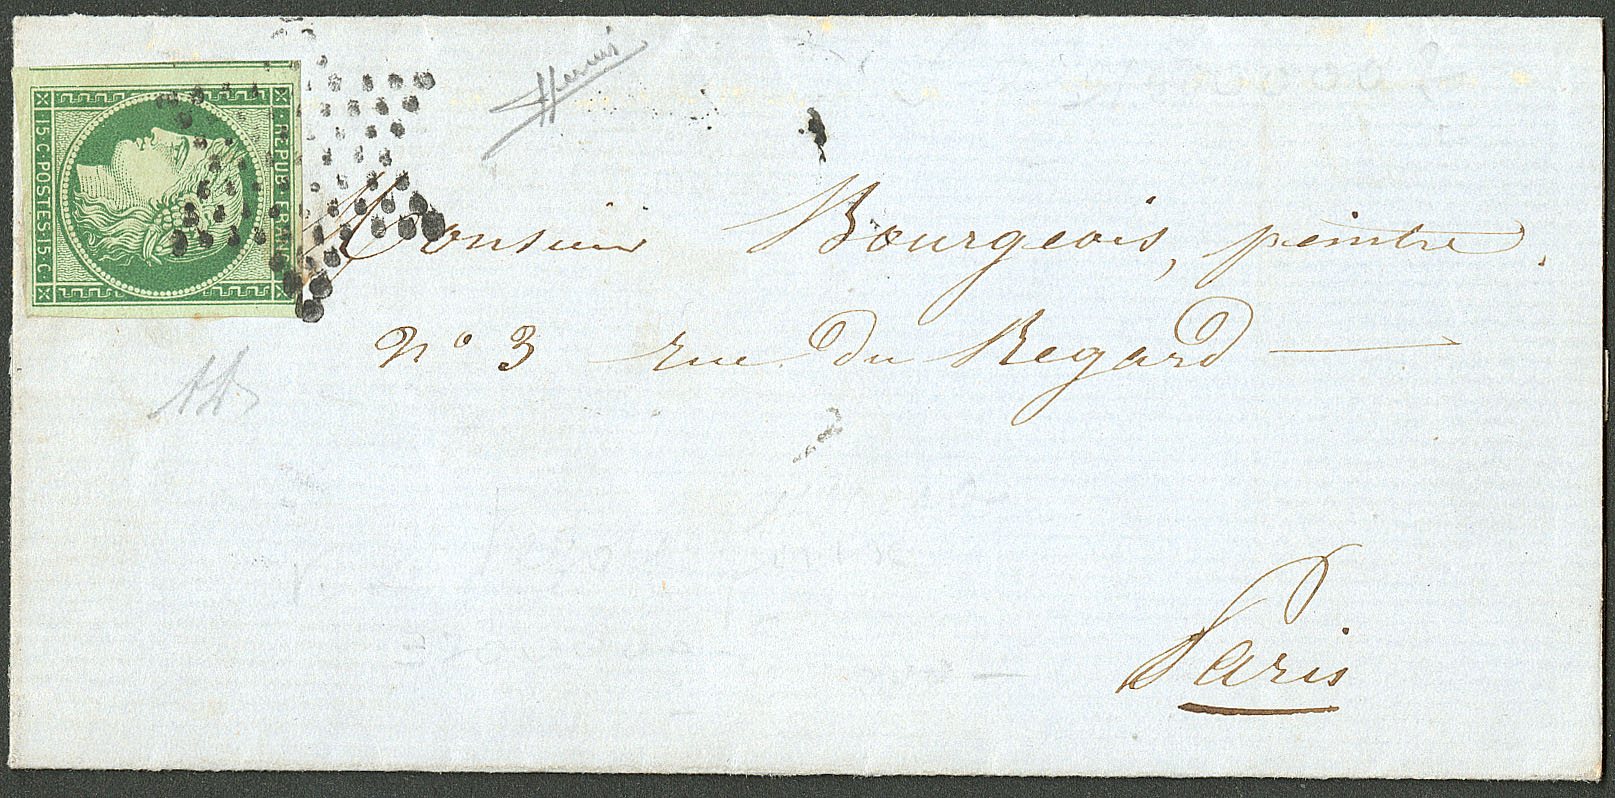 REPUB·FRANC
15·C·POSTES·15·C
Monsieur Bourgeois, peintre.
n° 3 rue du Regard
Paris